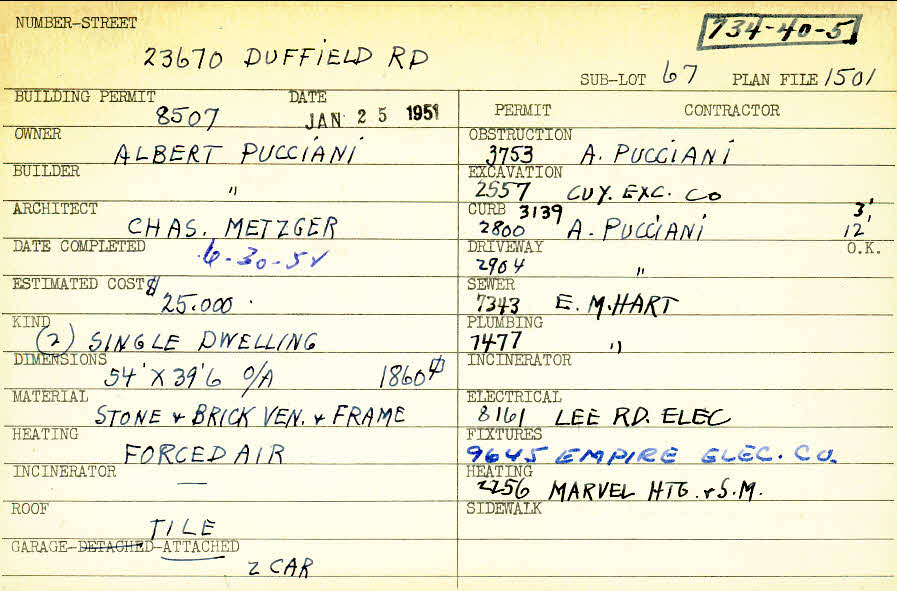 NUMBER-STREET
734-40-5
23670 DUFFIELD RD
SUB-LOT 67 PLAN FILE 1501
BUILDING PERMIT DATE
8507 JAN 25 1951
OWNER
ALBERT PUCCIANI
BUILDER
"
ARCHITECT
CHAS. METZGER
DATE COMPLETED
6-30-52
ESTIMATED COST $
25.000.
KIND
(2) SINGLE DWELLING
DIMENSIONS
54' X 39'6 O/A 1860
MATERIAL
STONE & BRICK VEN. & FRAME
HEATING
FORCED AIR
INCINERATOR
—
ROOF
TILE
GARAGE-DETACHED-ATTACHED
2 CAR
PERMIT CONTRACTOR
OBSTRUCTION
3753 A. PUCCIANI
EXCAVATION
2557 CUY. EXC. CO
CURB 3139 3'
2800 A. PUCCIANI 12'
DRIVEWAY O.K.
2904 "
SEWER
7343 E. M. HART
PLUMBING
7477 "
INCINERATOR
ELECTRICAL
8161 LEE RD. ELEC
FIXTURES
9645 EMPIRE ELEC. CO.
HEATING
2256 MARVEL HTG. & S.M.
SIDEWALK